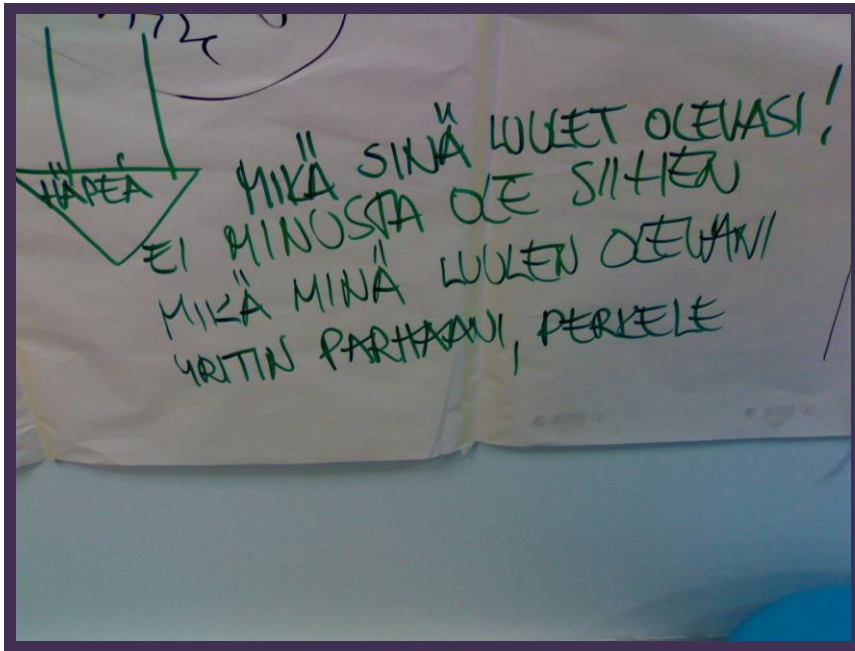 HÄPEÄ
MIKÄ SINÄ LUULET OLEVASI!
EI MINUSTA OLE SIIHEN
MIKÄ MINÄ LUULEN OLEVANI
YRITIN PARHAANI, PERKELE